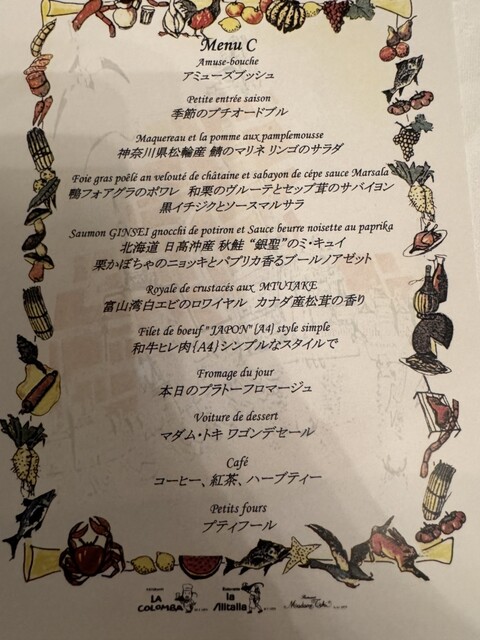 Menu C
Amuse-bouche
アミューズブッシュ
Petite entrée saison
季節のプチオードブル
Maquereau et la pomme aux pamplemousse
神奈川県松輪産 鯖のマリネ リンゴのサラダ
Foie gras poêlè an velouté de châtaine et sabayon de cépe sauce Marsala
鴨フォアグラのポワレ 和栗のヴルーテとセップ茸のサバイヨン
黒イチジクとソースマルサラ
Saumon GINSEI gnocchi de potiron et Sauce beurre noisette au paprika
北海道 日高沖産 秋鮭 “銀聖”のミ・キュイ
栗かぼちゃのニョッキとパプリカ香るブールノアゼット
Royale de crustacés aux MTUTAKE
富山湾白エビのロワイヤル カナダ産松茸の香り
Filet de boeuf "JAPON" {A4} style simple
和牛ヒレ肉{A4}シンプルなスタイルで
Fromage du jour
本日のプラトーフロマージュ
Voiture de dessert
マダム・トキ ワゴンデセール
Café
コーヒー、紅茶、ハーブティー
Petits fours
プティフール
LA COLOMBA
la Alitalia
Madame Toki